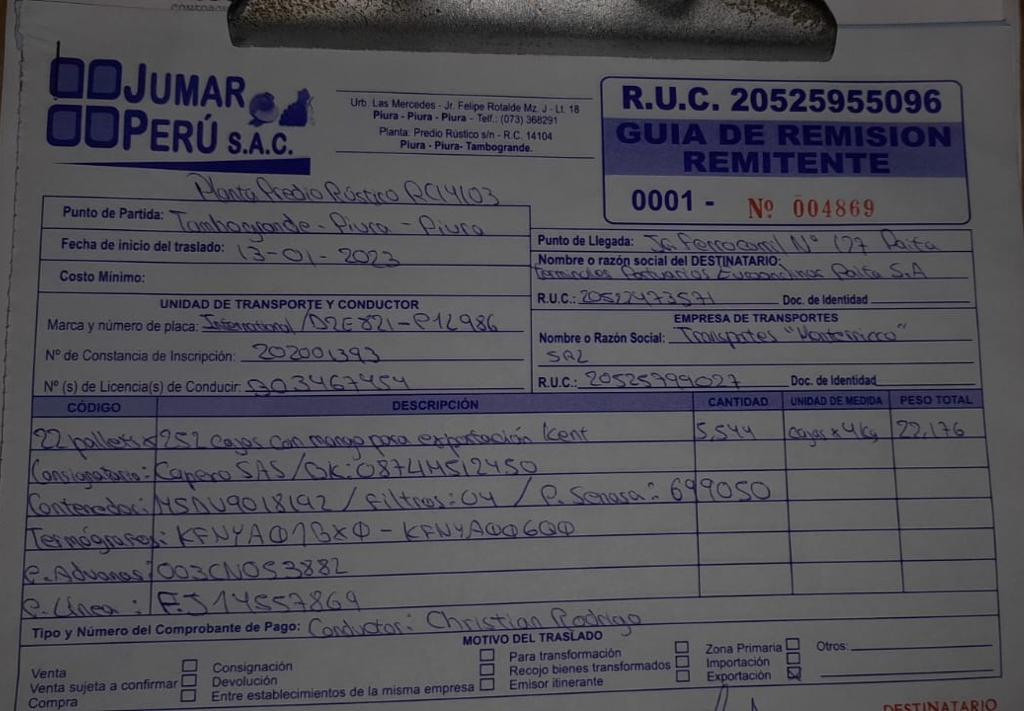 JUMAR
PERÚ S.A.C.
Urb. Las Mercedes - Jr. Felipe Rotalde Mz. J - Lt. 18
Piura - Piura - Piura - Telf.: (073) 368291
Planta: Predio Rústico s/n - R.C. 14104
Piura - Piura- Tambogrande.
R.U.C. 20525955096
GUIA DE REMISION
REMITENTE
0001 - Nº 004869
Planta Predio Rústico RC14103
Punto de Partida: Tambogrande - Piura - Piura
Fecha de inicio del traslado: 13-01-2023
Costo Mínimo:
UNIDAD DE TRANSPORTE Y CONDUCTOR
Marca y número de placa: International /D2E821-P12986
Nº de Constancia de Inscripción: 202001393
Nº (s) de Licencia(s) de Conducir: B03467454
Punto de Llegada: Nº 127 Paita
Nombre o razón social del DESTINATARIO:
Terminales Portuarios Euroandinos Paita S.A
R.U.C.: 20522473571 Doc. de Identidad
EMPRESA DE TRANSPORTES
Nombre o Razón Social: Transportes "Monterrico"
SRL
R.U.C.: 20525799027 Doc. de Identidad
CÓDIGO DESCRIPCIÓN CANTIDAD UNIDAD DE MEDIDA PESO TOTAL
22 pallets x 252 cajas con mango para exportación Kent 5,544 cajas x 4kg 22,176
Consignatario: Capexo SAS /BK: 0874MS12450
Contenedor: MSDU9018192 / Filtros: 04 / P. Senasa: 699050
Termógrafos: KFNYA01BX0 - KFNYA006Q0
P. Aduanas: 003CN053882
P. Línea : FJ14557869
Tipo y Número del Comprobante de Pago: Conductor: Christian Rodrigo
MOTIVO DEL TRASLADO
Venta
Venta sujeta a confirmar
Compra
Consignación
Devolución
Entre establecimientos de la misma empresa
Para transformación
Recojo bienes transformados
Emisor itinerante
Zona Primaria
Importación
Exportación
Otros:
DESTINATARIO